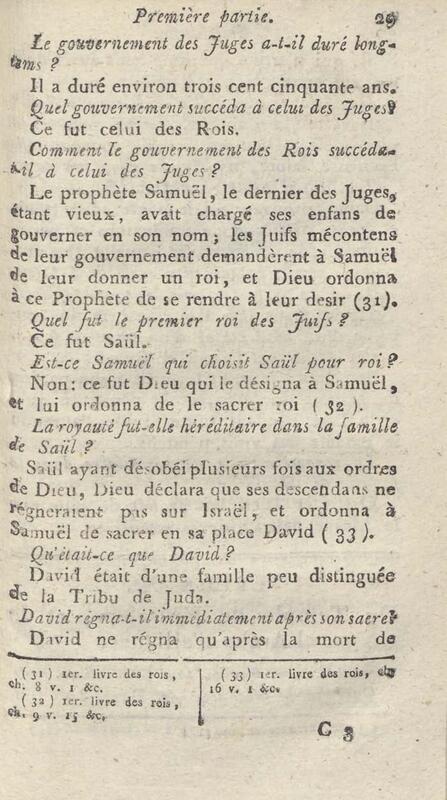 Première partie. 29
Le gouvernement des Juges a-t-il duré long-
tams ?
Il a duré environ trois cent cinquante ans.
Quel gouvernement succéda à celui des Juges?
Ce fut celui des Rois.
Comment le gouvernement des Rois succéda-
t-il à celui des Juges ?
Le prophète Samuël, le dernier des Juges,
étant vieux, avait chargé ses enfans de
gouverner en son nom ; les Juifs mécontens
de leur gouvernement demandèrent à Samuël
de leur donner un roi, et Dieu ordonna
à ce Prophète de se rendre à leur desir (31).
Quel fut le premier roi des Juifs ?
Ce fut Saül.
Est-ce Samuël qui choisit Saül pour roi ?
Non: ce fut Dieu qui le désigna à Samuël,
et lui ordonna de le sacrer roi ( 32 ).
La royauté fut-elle héréditaire dans la famille
de Saül ?
Saül ayant désobéi plusieurs fois aux ordres
de Dieu, Dieu déclara que ses descendans ne
régneraient pas sur Israël, et ordonna à
Samuël de sacrer en sa place David ( 33 ).
Qu'était-ce que David ?
David était d'une famille peu distinguée
de la Tribu de Juda.
David régna-t-il immédiatement après son sacre?
David ne régna qu'après la mort de
(31) 1er. livre des rois,
ch. 8 v. 1 &c.
(32) 1er. livre des rois,
ch. 9 v. 15 &c.
(33) 1er. livre des rois, ch.
16 v. 1 &c.
C 3